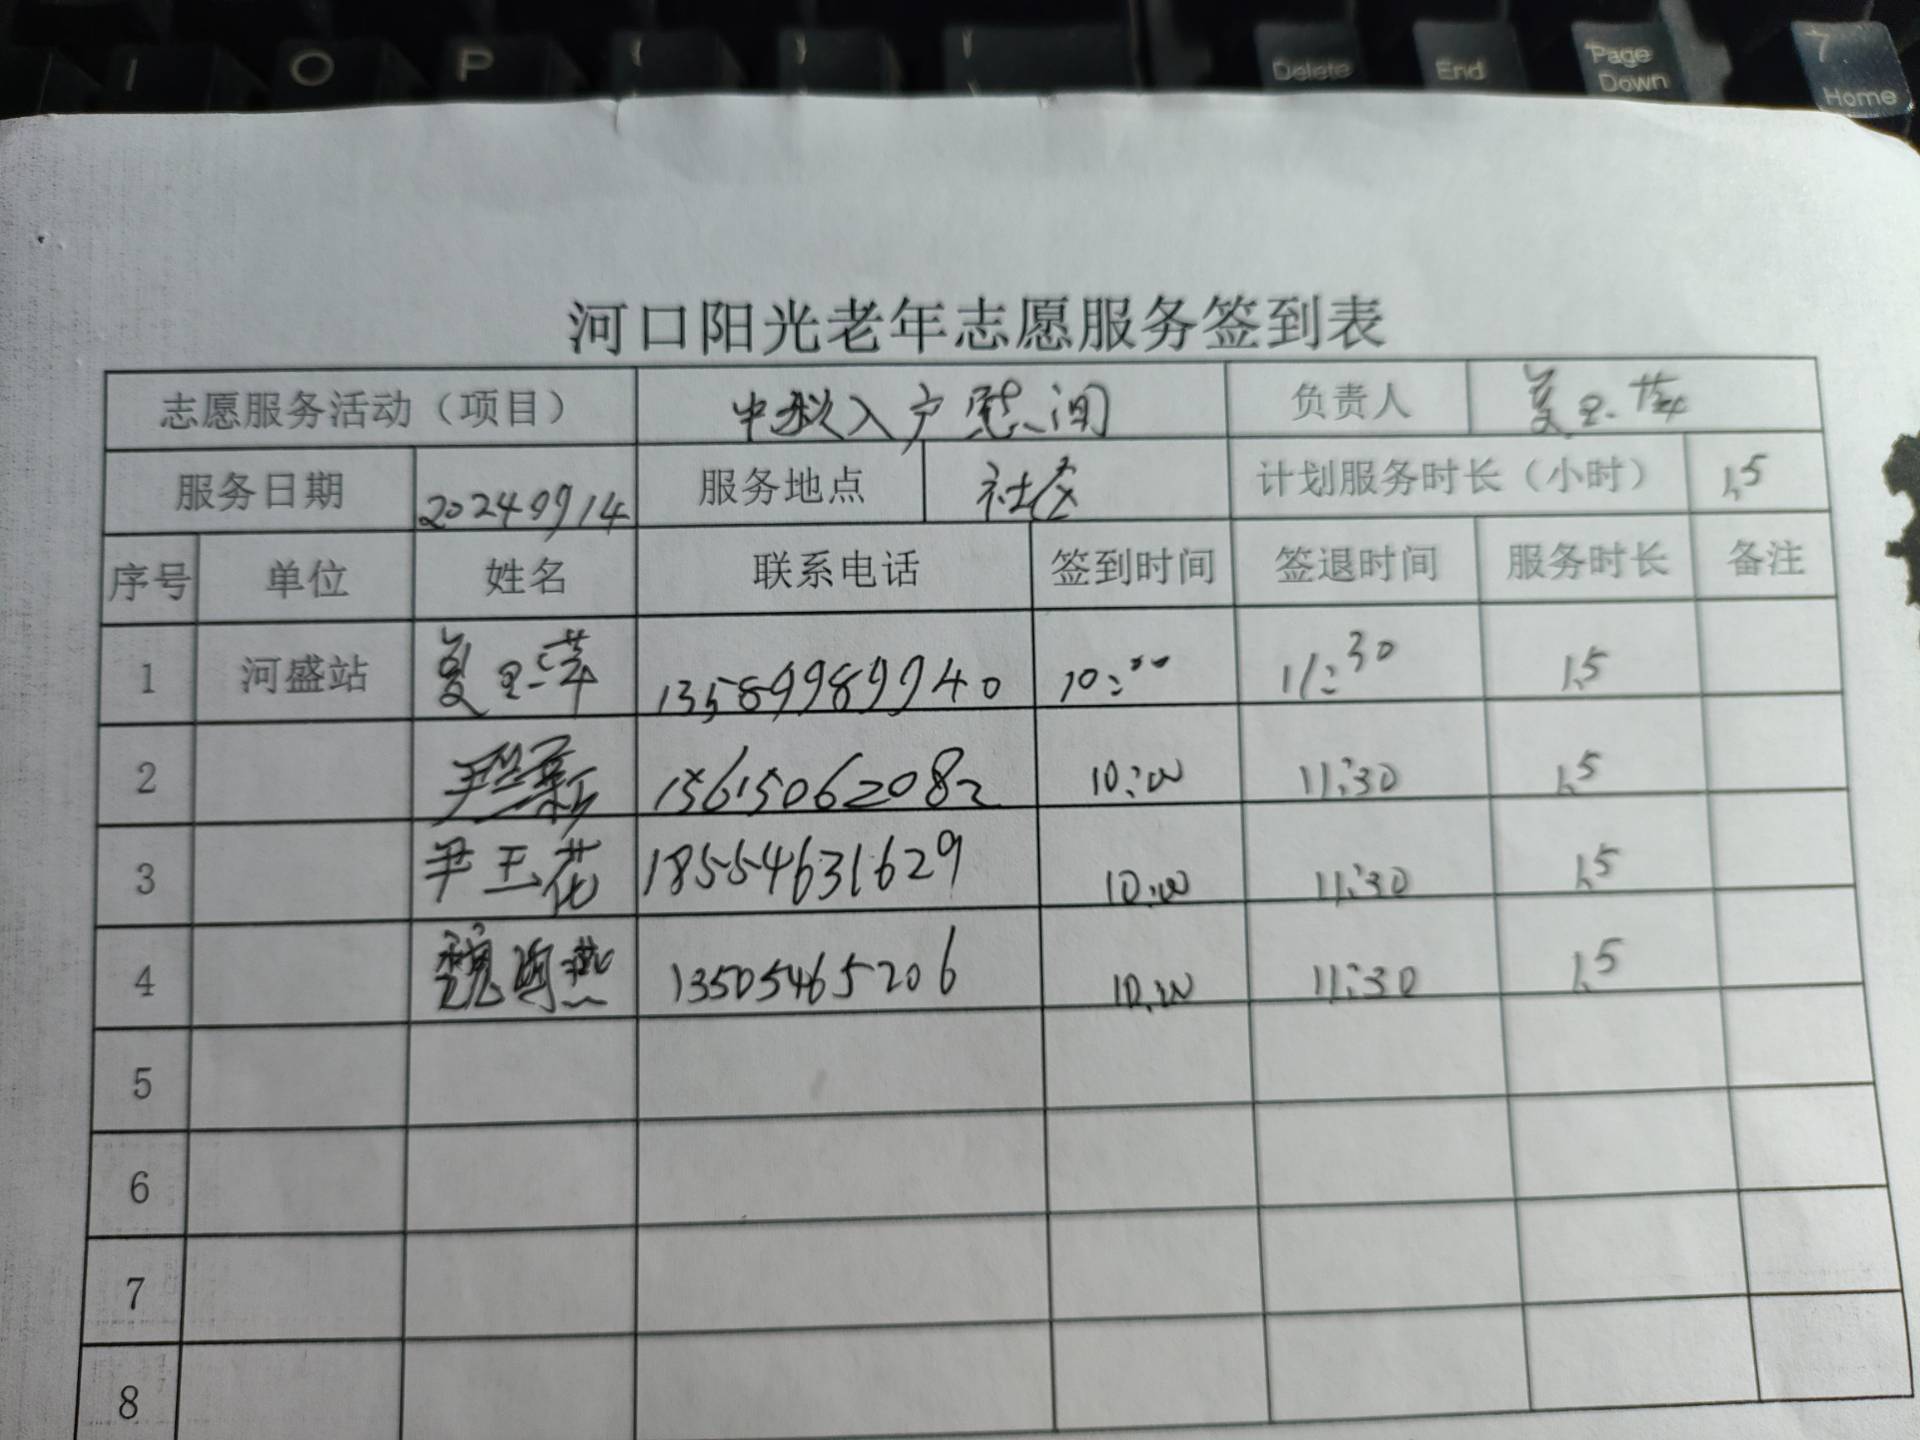 I O P Delete End Page Down 7 Home
河口阳光老年志愿服务签到表
志愿服务活动（项目） 中秋入户慰问 负责人
服务日期 20240914 服务地点 社区 计划服务时长（小时） 1.5
序号 单位 姓名 联系电话 签到时间 签退时间 服务时长 备注
1 河盛站 13589989940 10:00 11:30 1.5
2 尹 15615062082 10:00 11:30 1.5
3 尹玉花 18554631629 10:00 11:30 1.5
4 魏海燕 13505465206 10:00 11:30 1.5
5
6
7
8